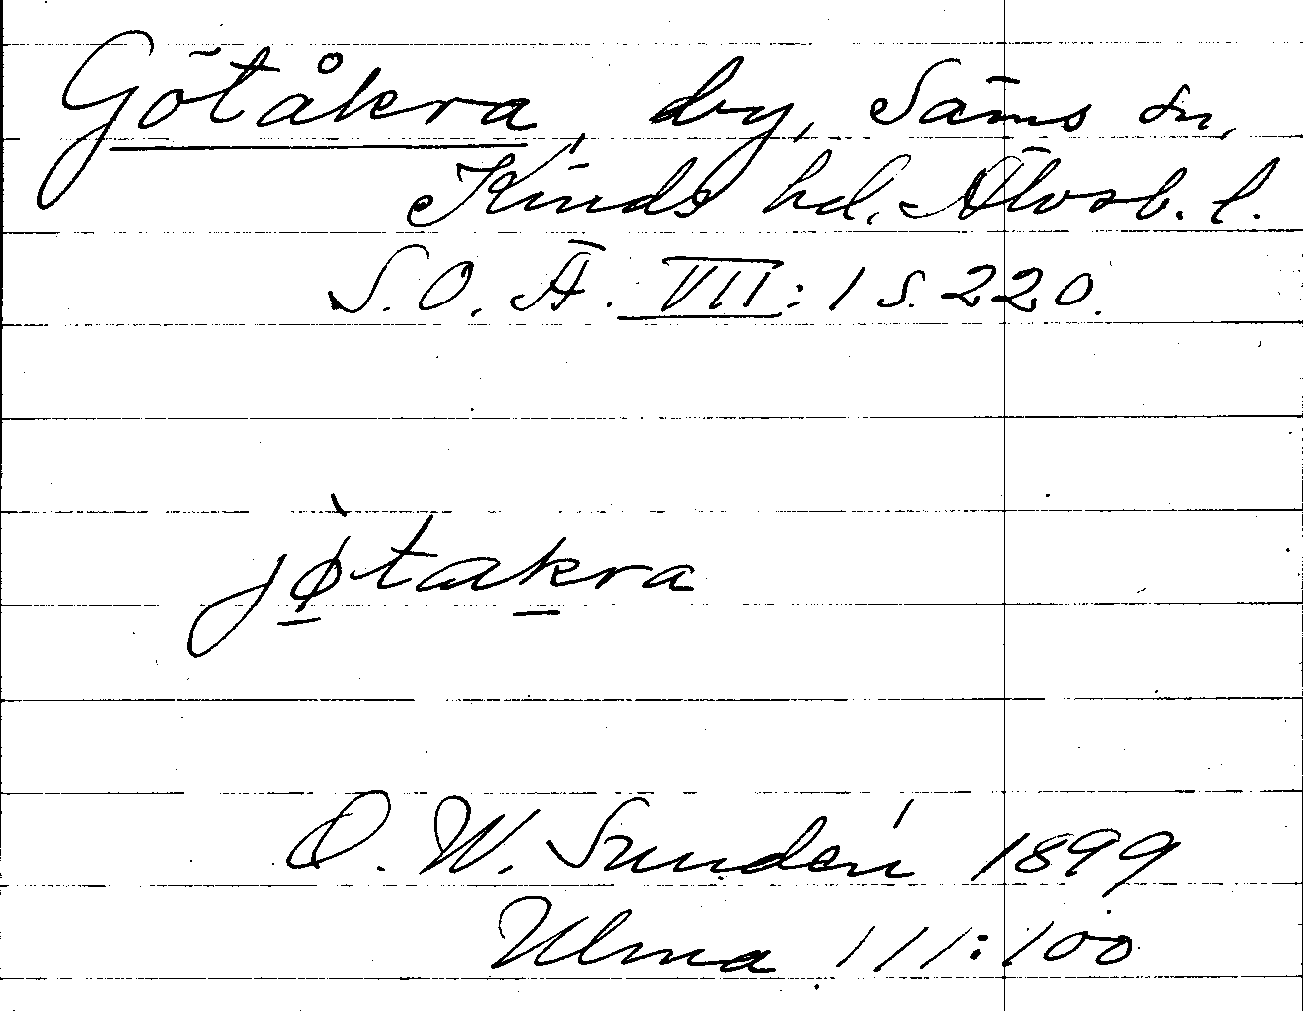 Götåkra, by, Säms sn,
Kinds hd. Älvsb. l.
S.O.Ä. VII:1 s. 220.
jø̀takra
O. W. Sundén 1899
Ulma 111:100